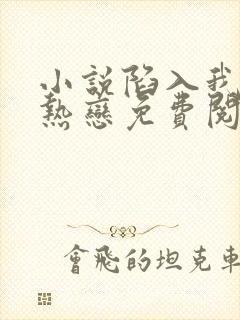 小说陷入我
熱戀免費閱
會飛的坦克車